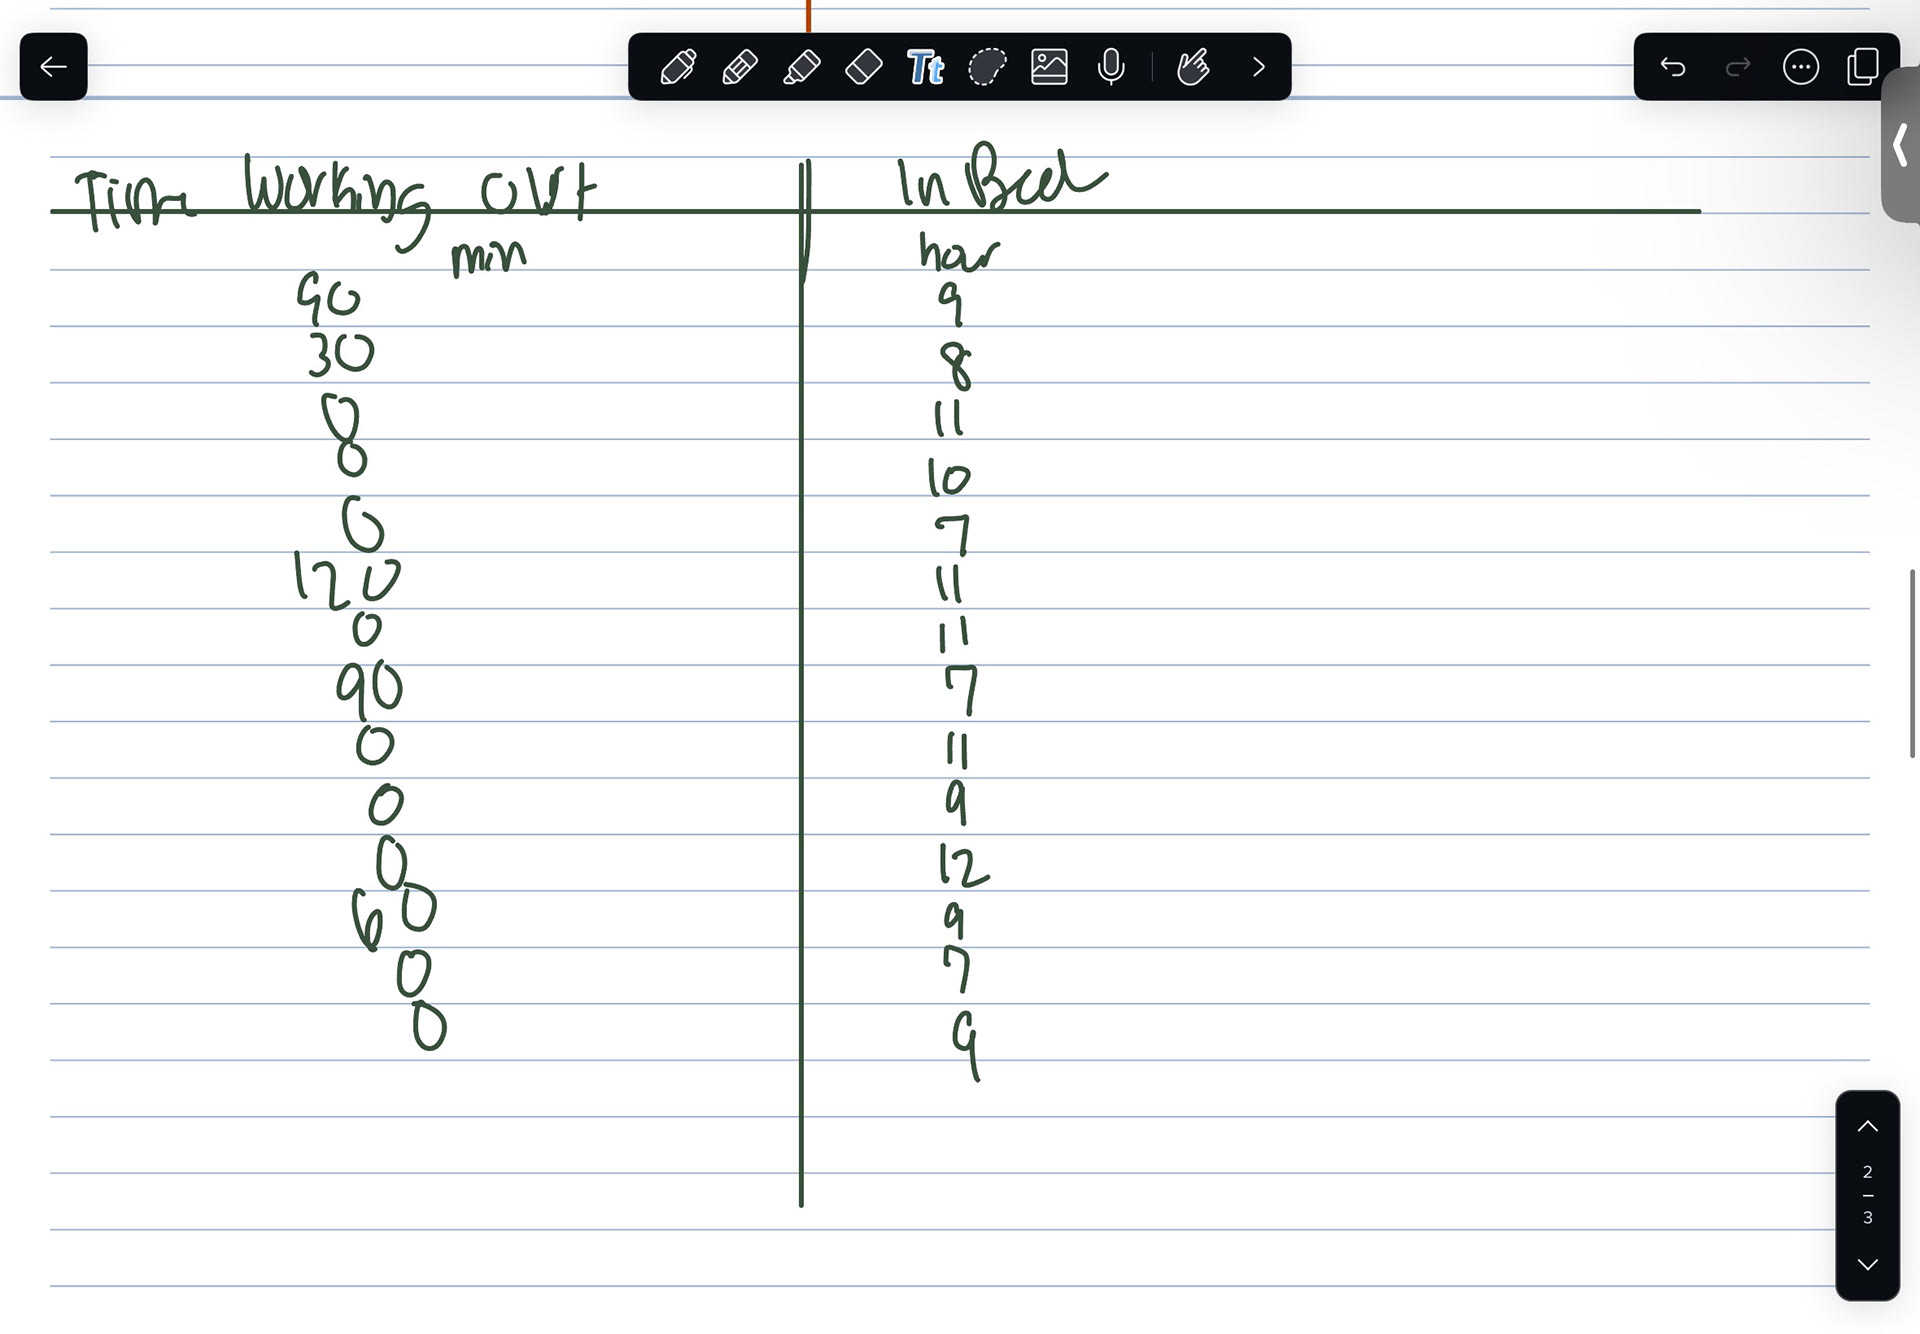 Time Working Out In Bed
min hour
90 9
30 8
0 11
0 10
0 7
120 11
0 11
90 7
0 11
0 9
0 12
60 9
0 7
0 9
Tt
2
3